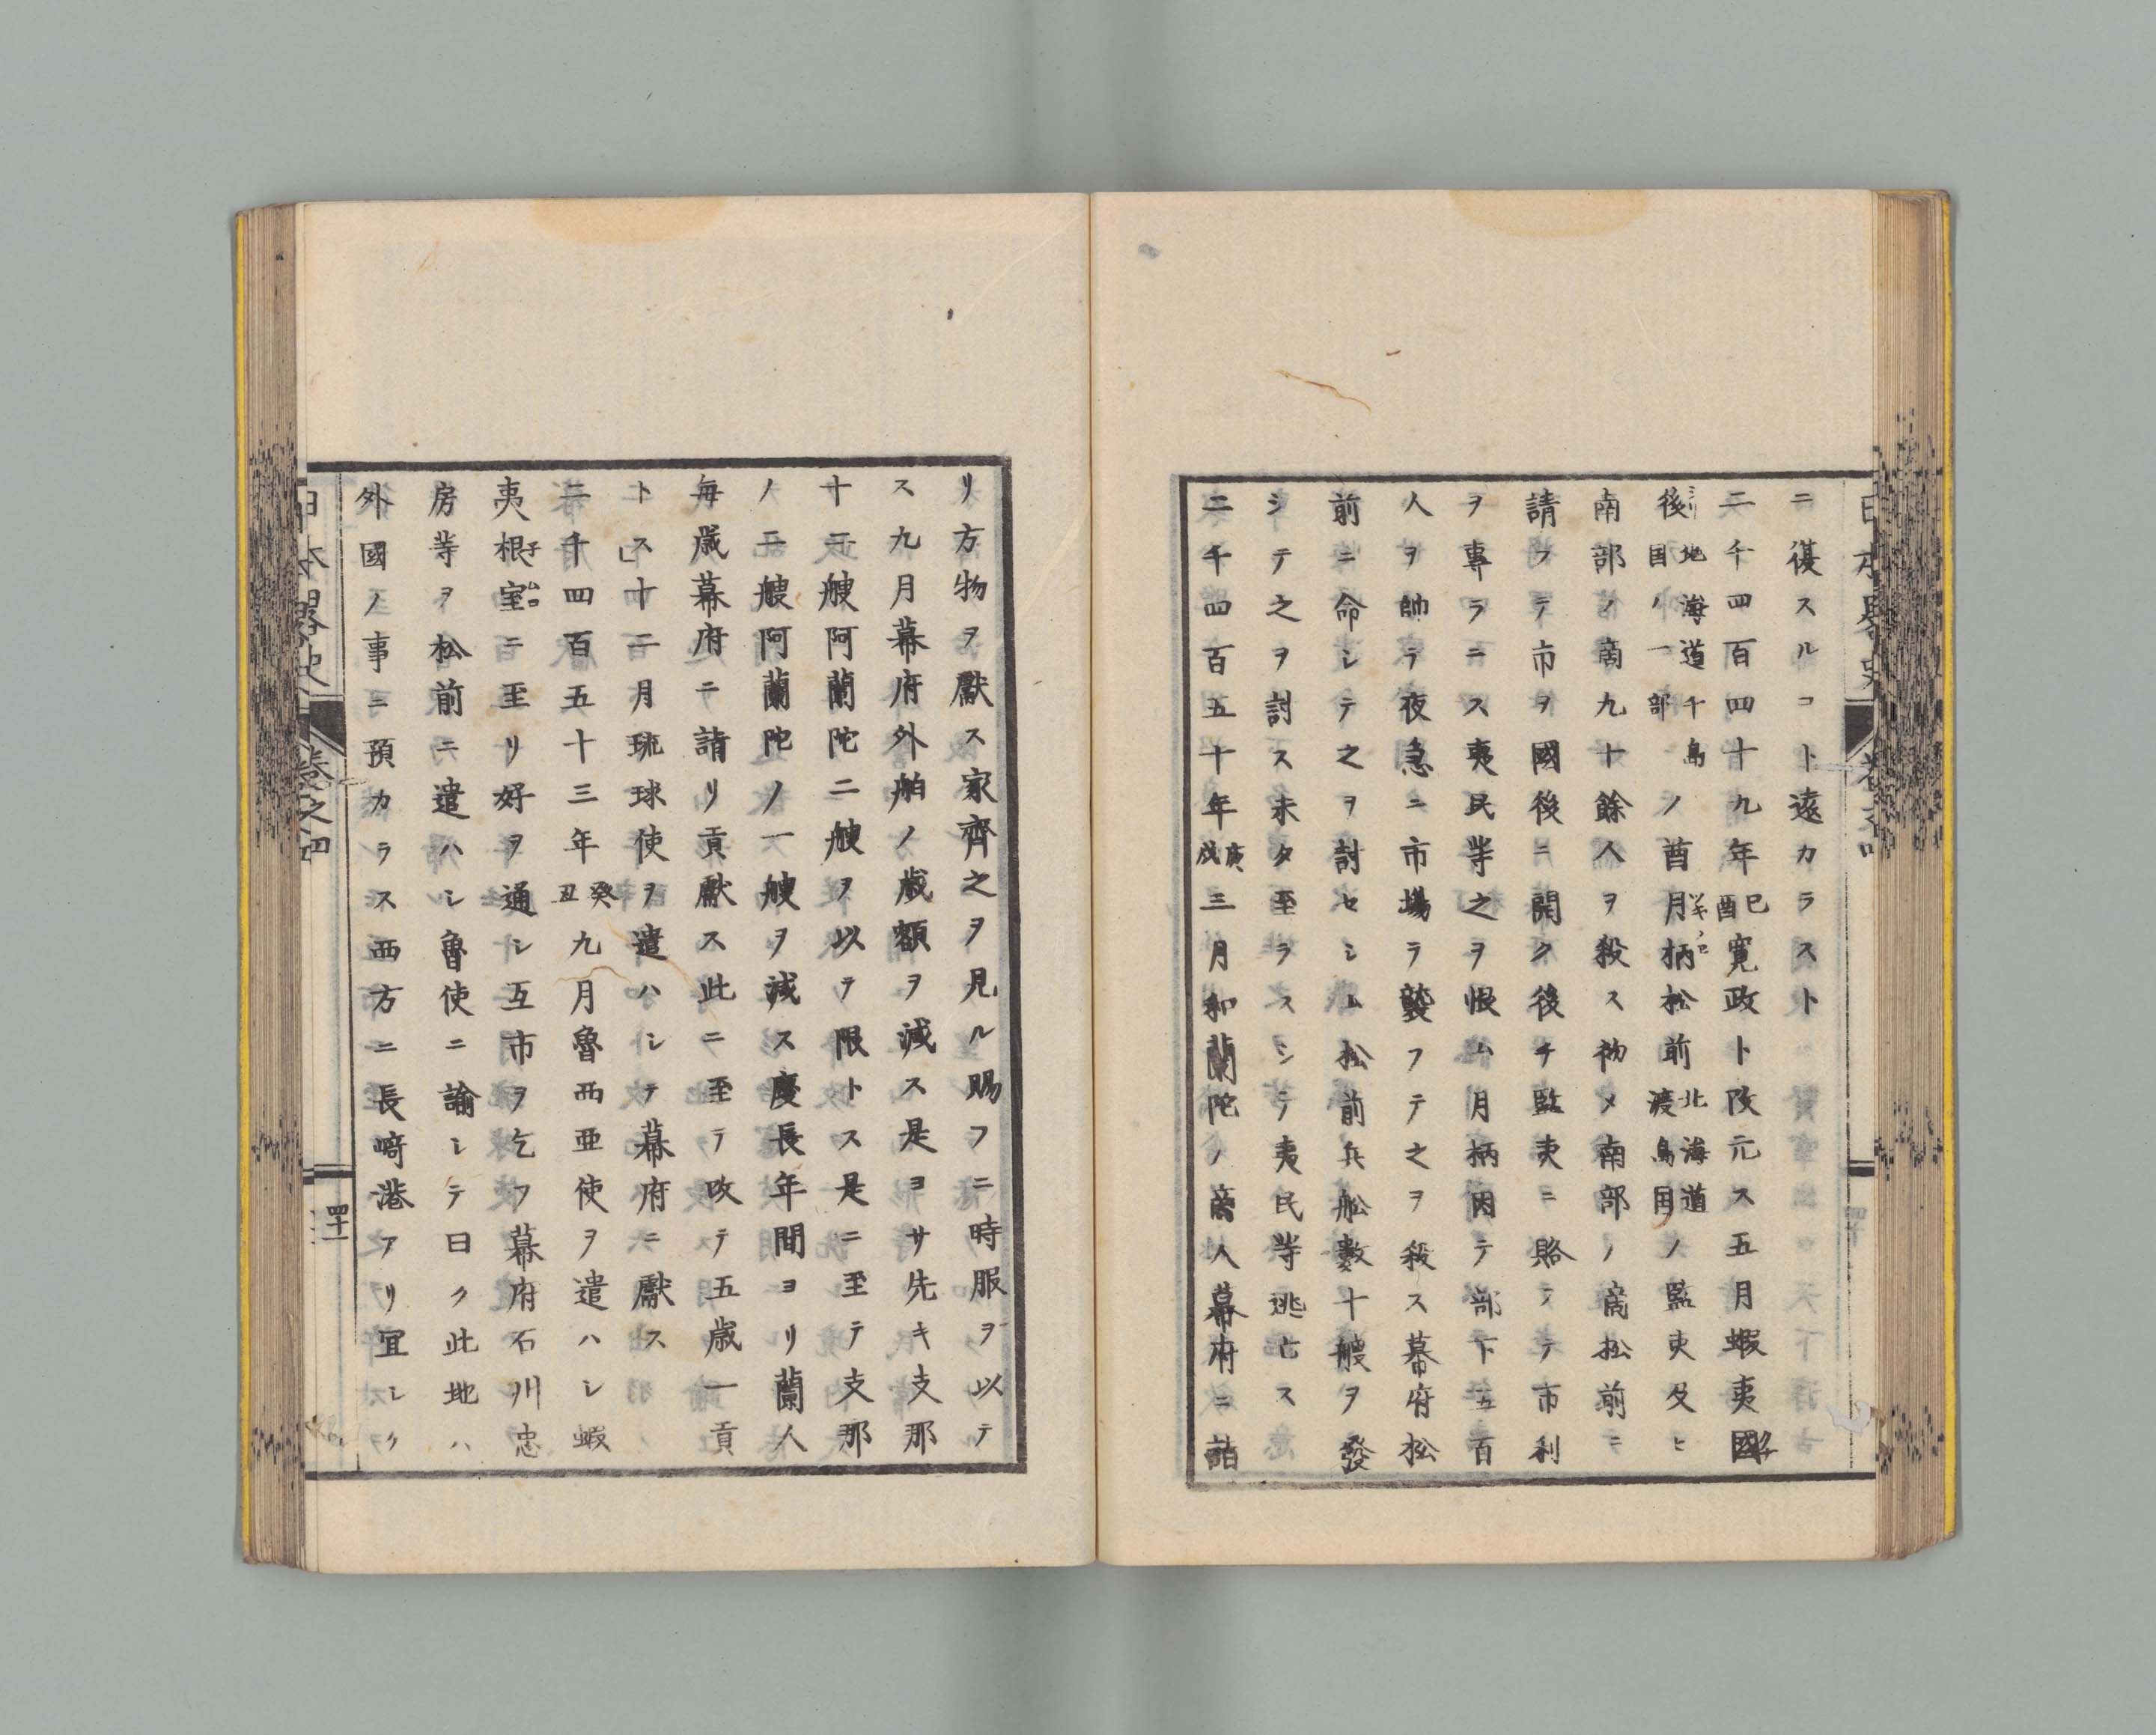 ニ復スルコト遠カラスト
二千四百四十九年己酉寛政ト改元ス五月蝦夷國
後地海道千島国ノ一部ノ酋月柄松前北海道渡島国ノ監吏及ヒ
南部ノ商九十餘人ヲ殺ス初メ南部ノ商松前ニ
請フテ市ヲ國後ニ開ク後チ監吏ニ賂フテ市利
ヲ專ラニス夷民等之ヲ恨ム月柄因テ部下五百
人ヲ帥ヲ夜急ニ市場ヲ襲フテ之ヲ殺ス幕府松
前ニ命シテ之ヲ討セシム松前兵船數十艘ヲ發
シテ之ヲ討ス未タ至ラスシテ夷民等逃亡ス
二千四百五十年庚戌三月和蘭陀ノ商人幕府ニ詣
リ方物ヲ獻ス家齊之ヲ見ル賜フニ時服ヲ以テ
ス九月幕府外舶ノ歳額ヲ減ス是ヨサ先キ支那
十二艘阿蘭陀二艘ヲ以テ限トス是ニ至テ支那
ノ二艘阿蘭陀ノ一艘ヲ減ス慶長年間ヨリ蘭人
毎歳幕府ニ請リ貢獻ス此ニ至テ改テ五歳一貢
トス」十二月琉球使ヲ遣ハシテ幕府ニ獻ス
二千四百五十三年癸丑九月魯西亜使ヲ遣ハシ蝦
夷根室子ムロニ至リ好ヲ通シ互市ヲ乞フ幕府石川忠
房等ヲ松前ニ遣ハシ魯使ニ諭シテ曰ク此地ハ
外國ノ事ニ預カラス西方ニ長崎港アリ宜シク
日本畧史 巻之四 四十一